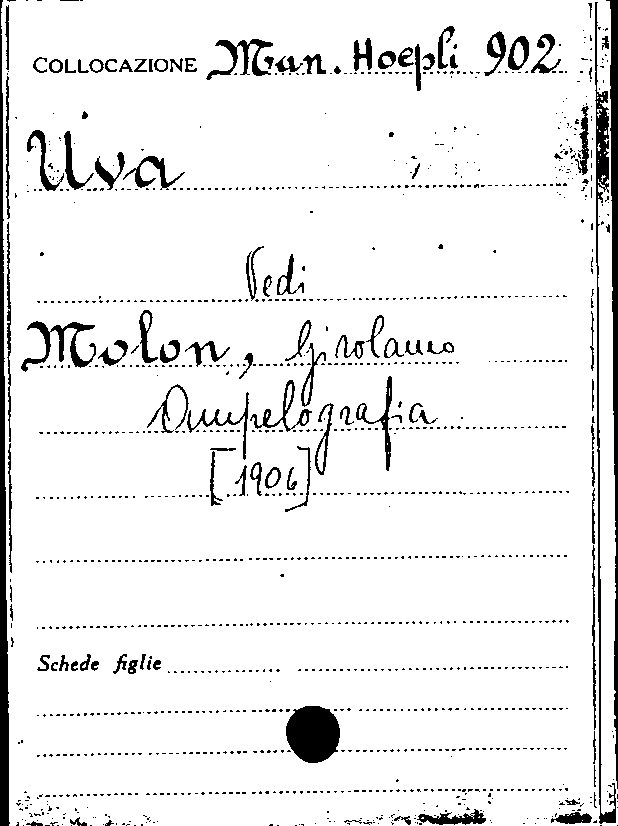 COLLOCAZIONE Man. Hoepli 902
Uva
Vedi
Molon, Girolamo
Ampelografia
[1906]
Schede figlie